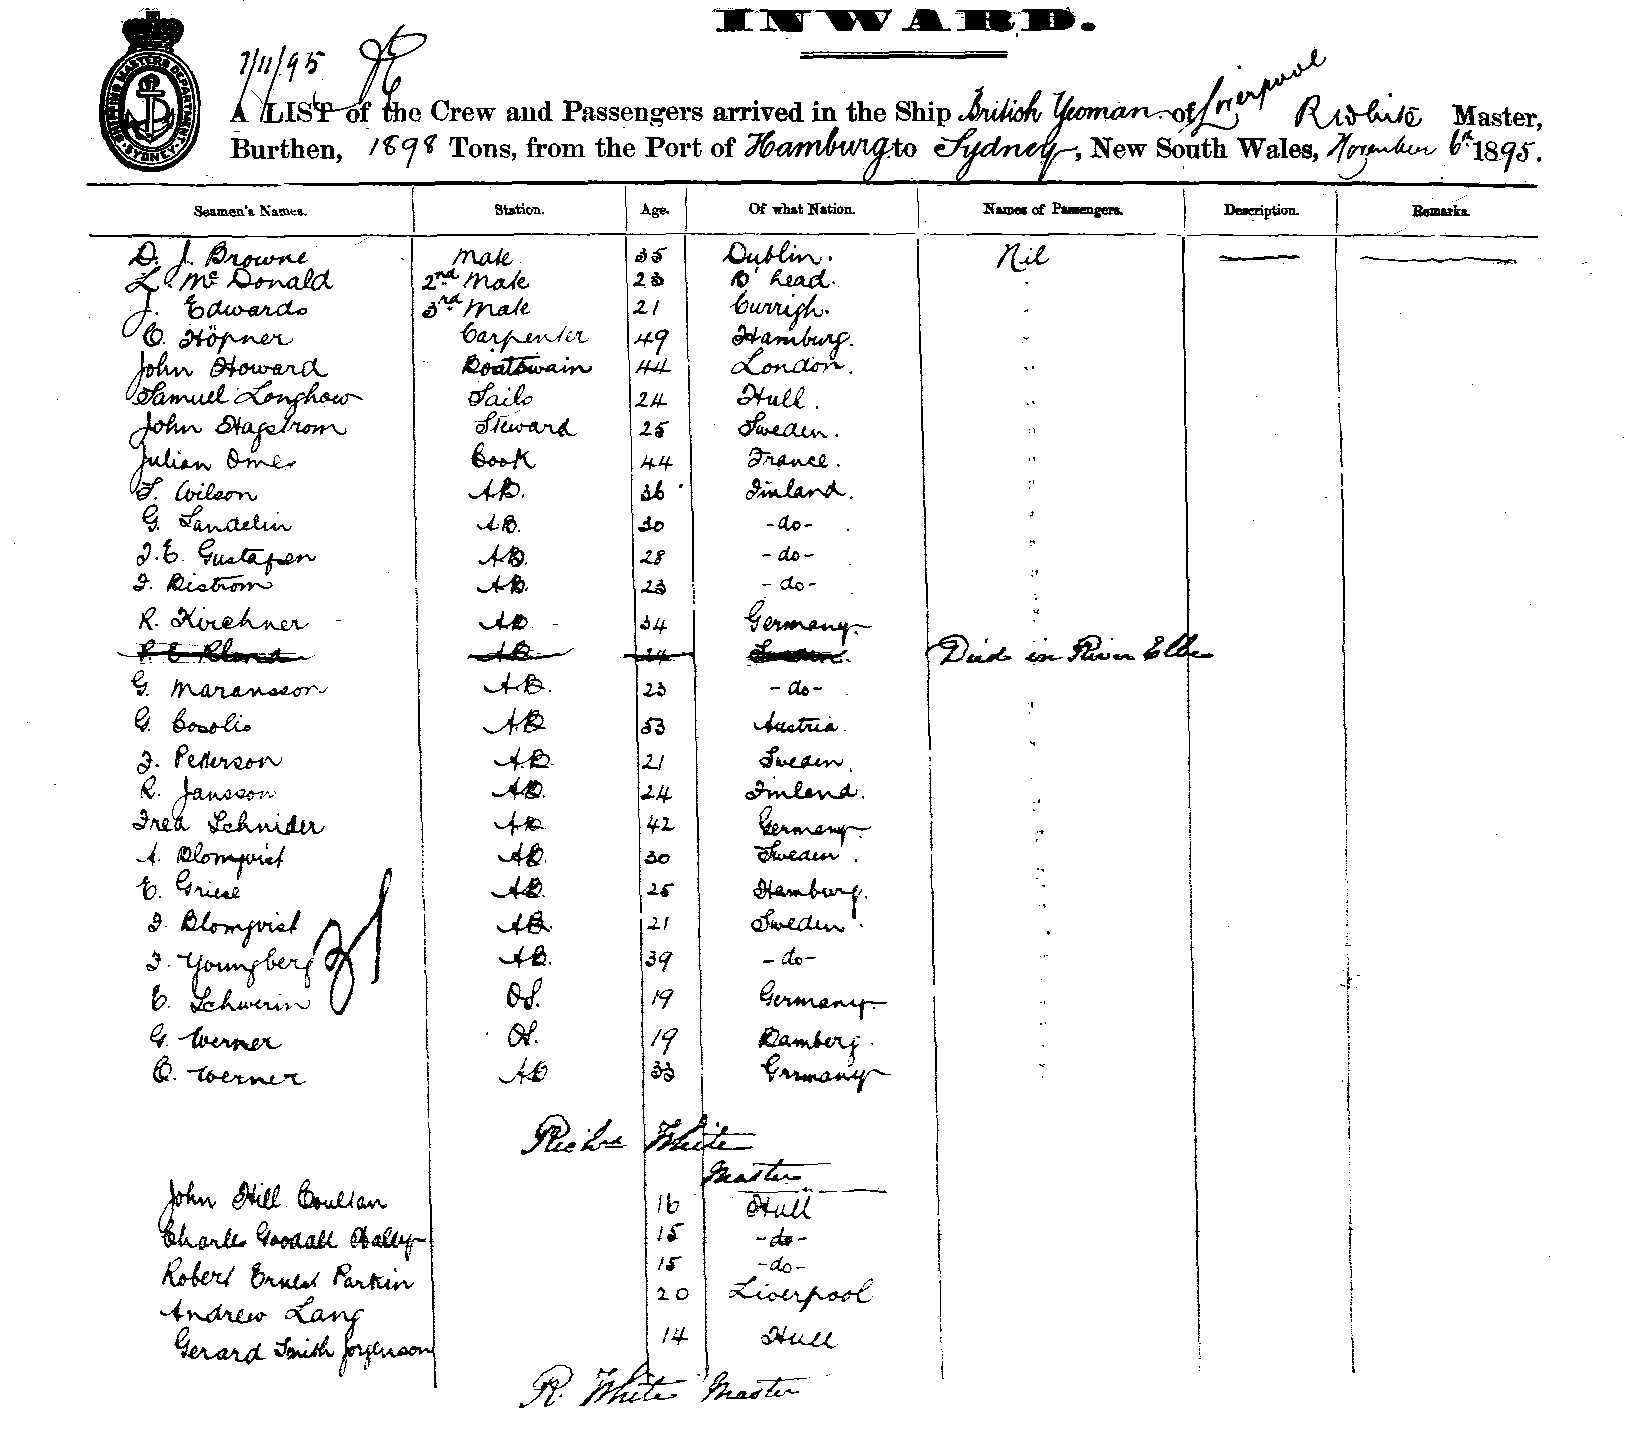 INWARD.
SHIPPING MASTERS DEPARTMENT SYDNEY
7/11/95
A LIST of the Crew and Passengers arrived in the Ship British Yeoman of Liverpool R White Master,
Burthen, 1898 Tons, from the Port of Hamburg to Sydney, New South Wales, November 6th 1895.
Seamen's Names. Station. Age. Of what Nation. Names of Passengers. Description. Remarks.
D. J. Browne Mate 35 Dublin. Nil
L. McDonald 2nd Mate 23 B'head.
J. Edwards 3rd Mate 21 Currigh.
C. Höpner Carpenter 49 Hamburg.
John Howard Boatswain 44 London.
Samuel Longhow Sails 24 Hull.
John Hagstrom Steward 25 Sweden.
Julian Omes Cook 44 France.
F. Wilson AB. 36 Finland.
G. Sandelin AB. 30 -do-
F. E. Gustafsen AB. 28 -do-
F. Bistrom AB. 23 -do-
R. Kirchner AB 34 Germany.
AB 24 Sweden. Died in River Elbe
G. Maransson AB. 23 -do-
G. Cosolis AB 53 Austria
F. Petterson AB. 21 Sweden.
R. Jansson AB. 24 Finland.
Fred Schnider AB 42 Germany
A. Blomqvist AB. 30 Sweden.
E. Griese AB. 25 Hamburg.
F. Blomqvist AB. 21 Sweden.
F. Youngberg AB. 39 -do-
E. Schwerin OS. 19 Germany.
G. Werner OS. 19 Bamberg.
O. Werner AB 33 Germany
31
Richd White
Master
John Hill Coultan 16 Hull
Charles Goodall Halley 15 -do-
Robert Ernest Parkin 15 -do-
Andrew Lang 20 Liverpool
Gerard Smith Jorgenson 14 Hull
R. White Master